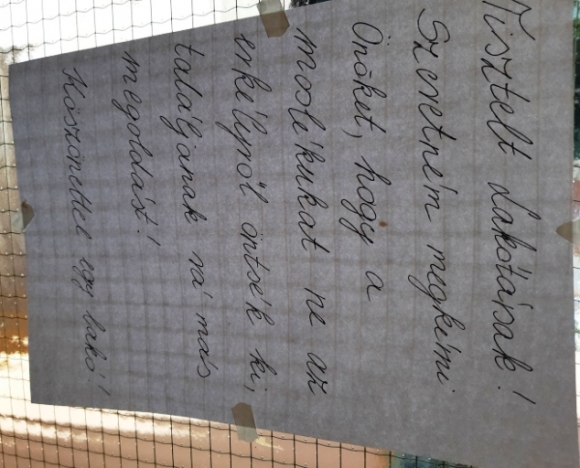 Tisztelt Lakótársak!
Szeretném megkérni
Önöket, hogy a
moslékukat ne az
erkélyről öntsék ki,
találjanak rá más
megoldást!
Köszönettel egy lakó!